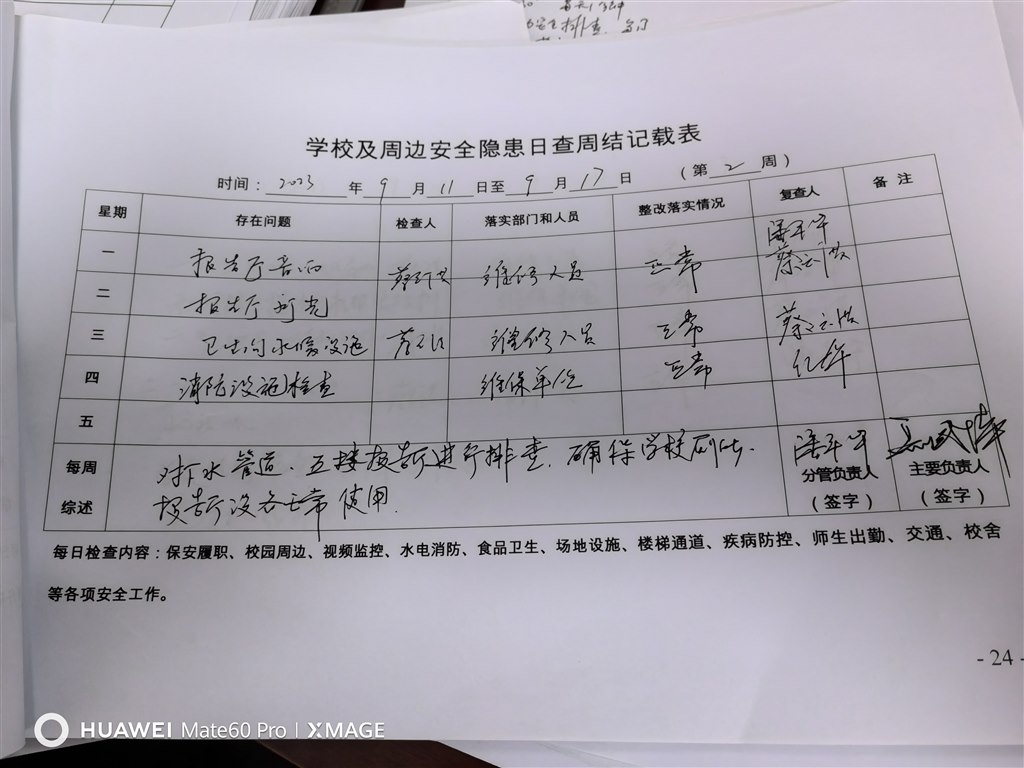 学校及周边安全隐患日查周结记载表
时间：2023年9月11日至9月17日 （第2周）
星期 存在问题 检查人 落实部门和人员 整改落实情况 复查人 备注
一 报告厅音响 维修人员 正常
二 报告厅灯光
三 卫生间水暖设施 维修人员 正常
四 消防设施检查 维保单位 正常
五
每周综述 对下水管道、五楼报告厅进行排查，确保学校厕所、
报告厅设备正常使用.
分管负责人 主要负责人
（签字） （签字）
每日检查内容：保安履职、校园周边、视频监控、水电消防、食品卫生、场地设施、楼梯通道、疾病防控、师生出勤、交通、校舍
等各项安全工作。
- 24 -
HUAWEI Mate60 Pro | XMAGE